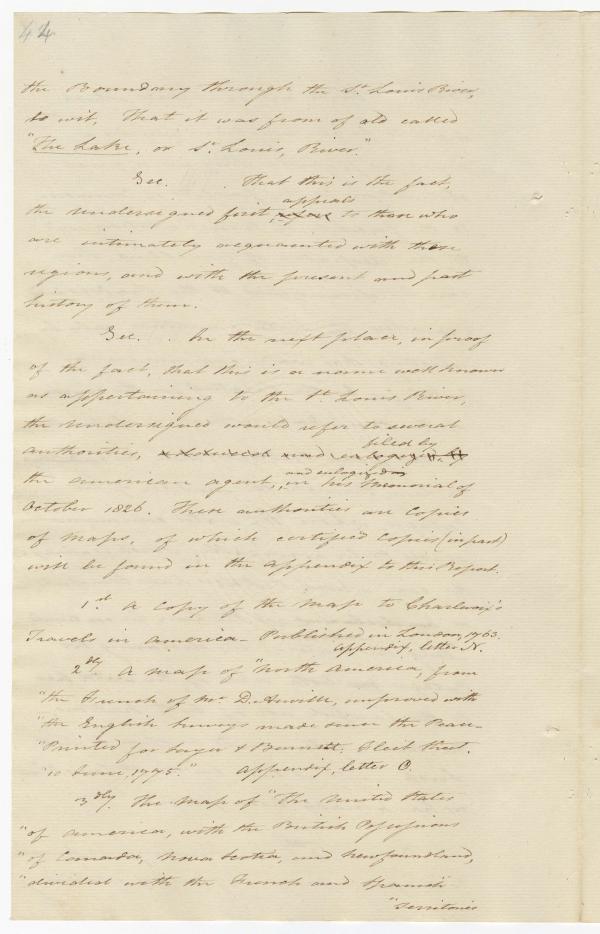 44
the Boundary through the St. Louis River,
to wit, That it was from of old called
"The Lake, or St. Louis, River."
Sec. . That this is the fact,
appeals
the undersigned first, to those who
are intimately acquainted with these
regions, and with the present and past
history of them.
Sec. . In the next place, in proof
of the fact, that this is a name well known
as appertaining to the St. Louis River,
the undersigned would refer to several
filed by
authorities,
and eulogized in
the American agent, in his Memorial of
October 1826. These authorities are Copies
of maps, of which certified Copies (in part)
will be found in the appendix to this Report.
1st. A copy of the map to Charlevoix's
Travels in America - Published in London, 1763.
Appendix, letter N.
2dly. A map of "North America, from
"the French of Mr. D'Anville, improved with
"the English Surveys made since the Peace -
"Printed for Sayer & Bennett. Fleet Street.
"10 June, 1775." Appendix, letter O.
3dly. The map of "The United States
"of America, with the British Possessions
"of Canada, Nova Scotia, and Newfoundland,
"divided with the French and Spanish
"Territories